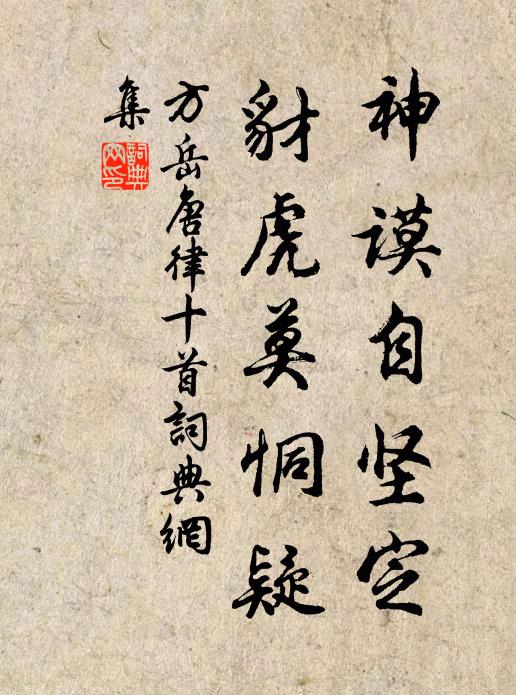 神谟自坚定
豺虎莫恫疑
方岳唐律十首詞典網
集
詞典網印